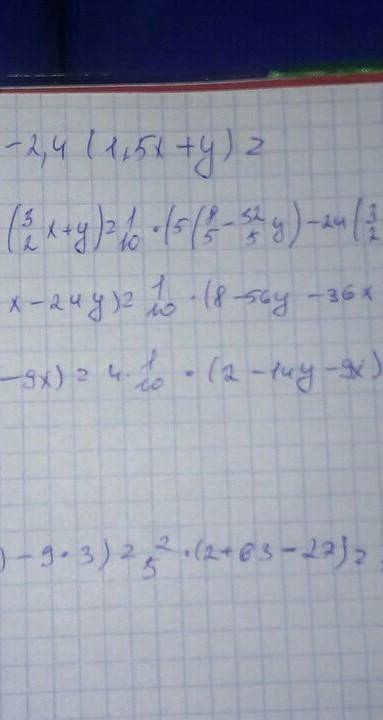 -2,4 (1,5x+y) =
(3/2 x+y) = 1/10 · (5(8/5 - 32/5 y) - 24(3/2
x-24y) = 1/10 · (8-56y-36x
-9x) = 4·1/10 · (2-14y-9x)
)-9·3) = 2/5 · (2+63-27) =